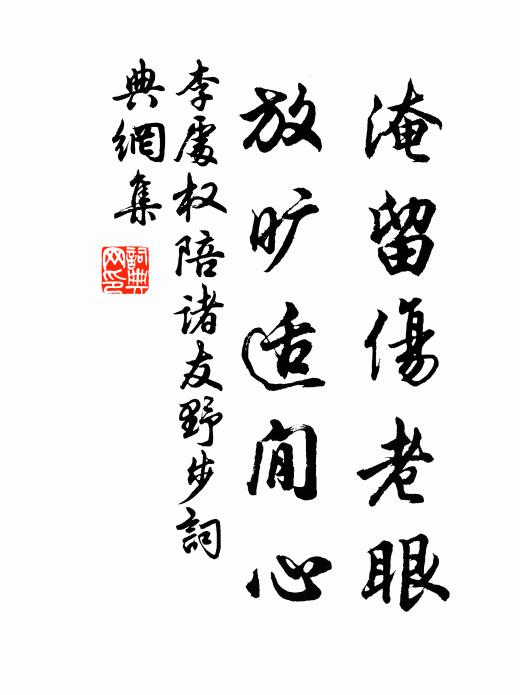 淹留傷老眼
放旷适閒心
李處权陪诸友野步詞
典網集
詞典
网印